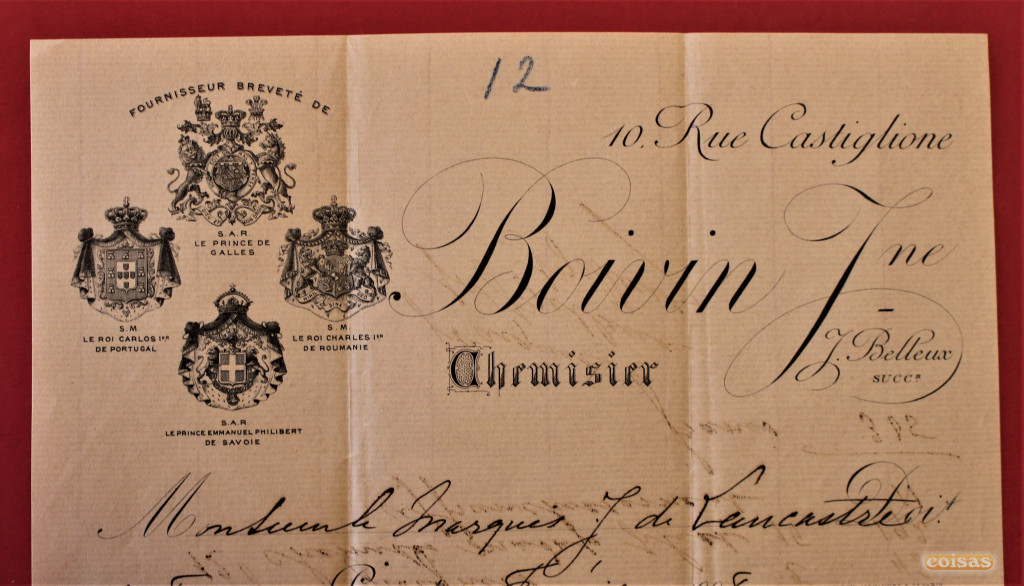 12
FOURNISSEUR BREVETÉ DE
S.A.R.
LE PRINCE DE
GALLES
S.M.
LE ROI CARLOS IER
DE PORTUGAL
S.M.
LE ROI CHARLES IER
DE ROUMANIE
S.A.R.
LE PRINCE EMMANUEL PHILIBERT
DE SAVOIE
10. Rue Castiglione
Boivin Jne
J. Belleux
SUCCR
Chemisier
Monsieur le Marques J. de Lancastre Doit
coisas